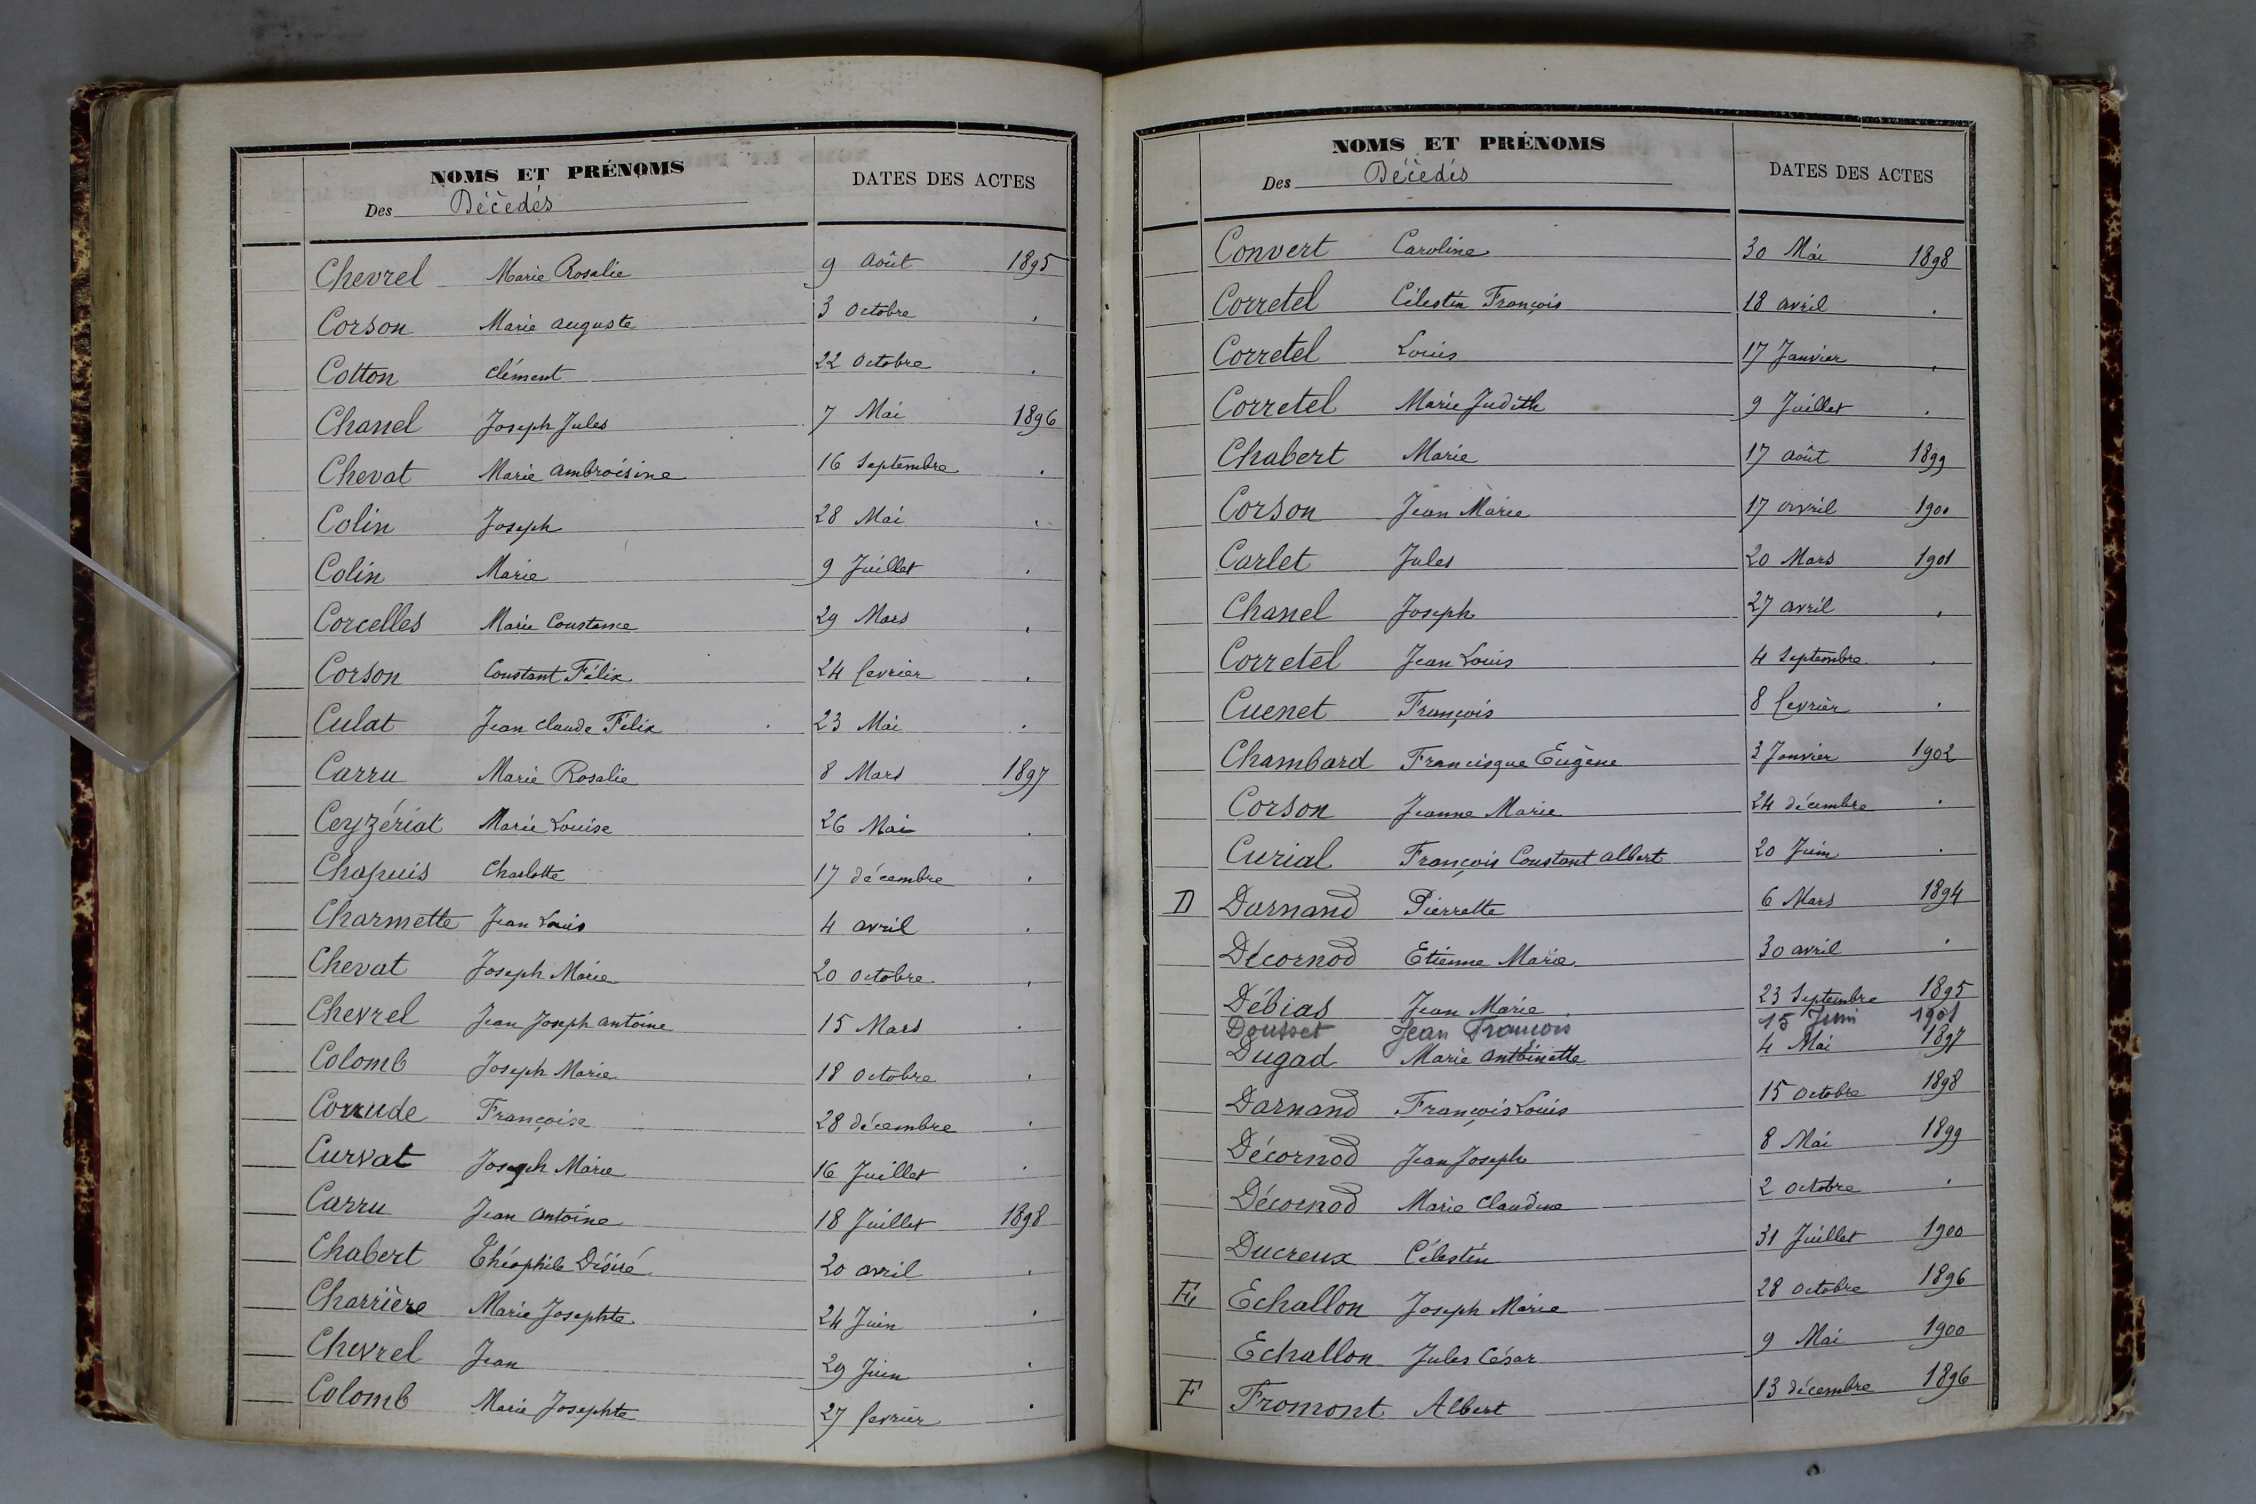 NOMS ET PRÉNOMS
Des Décèdés
DATES DES ACTES
Chevrel Marie Rosalie 9 Août 1895
Corson Marie Auguste 3 Octobre .
Cotton Clément 22 Octobre .
Chanel Joseph Jules 7 Mai 1896
Chevat Marie Ambroisine 16 Septembre .
Colin Joseph 28 Mai .
Colin Marie 9 Juillet .
Corcelles Marie Constance 29 Mars .
Corson Constant Félix 24 fevrier .
Culat Jean Claude Félix 23 Mai .
Carru Marie Rosalie 8 Mars 1897
Ceyzériat Marie Louise 26 Mai .
Chapuis Charlotte 17 décembre .
Charmette Jean Louis 4 avril .
Chevat Joseph Marie 20 octobre .
Chevrel Jean Joseph Antoine 15 Mars .
Colomb Joseph Marie 18 octobre .
Corrude Françoise 28 décembre .
Curvat Joseph Marie 16 Juillet .
Carru Jean Antoine 18 Juillet 1898
Chabert Théophile Désiré 20 avril .
Charrière Marie Josephte 24 Juin .
Chevrel Jean 29 Juin .
Colomb Marie Josephte 27 fevrier .
NOMS ET PRÉNOMS
Des Décèdés
DATES DES ACTES
Convert Caroline 30 Mai 1898
Corretel Célestin François 18 avril .
Corretel Louis 17 Janvier .
Corretel Marie Judith 9 Juillet .
Chabert Marie 17 août 1899
Corson Jean Marie 17 avril 1900
Carlet Jules 20 Mars 1901
Chanel Joseph 27 avril .
Corretel Jean Louis 4 Septembre .
Cuenet François 8 fevrier .
Chambard Francisque Eugène 3 Janvier 1902
Corson Jeanne Marie 24 décembre .
Curial François Constant Albert 20 Juin .
D Darnand Pierrette 6 Mars 1894
Décornod Etienne Marie 30 avril .
Débias Jean Marie 23 Septembre 1895
Dousset Jean François 15 Juin 1901
Dugad Marie Antoinette 4 Mai 1897
Darnand François Louis 15 octobre 1898
Décornod Jean Joseph 8 Mai 1899
Décornod Marie Claudine 2 octobre .
Ducreux Célestin 31 Juillet 1900
E Echallon Joseph Marie 28 octobre 1896
Echallon Jules César 9 Mai 1900
F Fromont Albert 13 décembre 1896